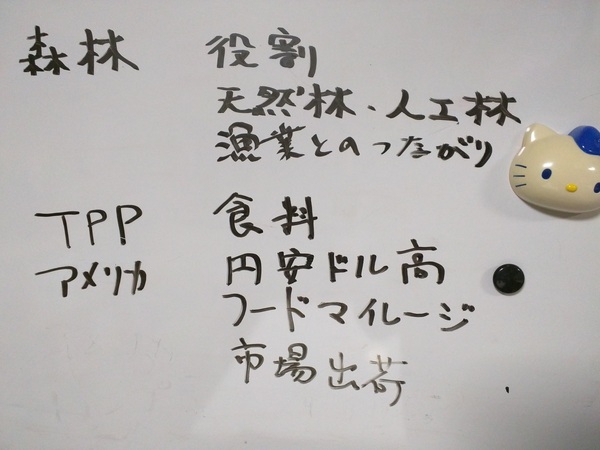 森林 役割
天然林・人工林
漁業とのつながり
TPP 食料
アメリカ 円安ドル高
フードマイレージ
市場出荷